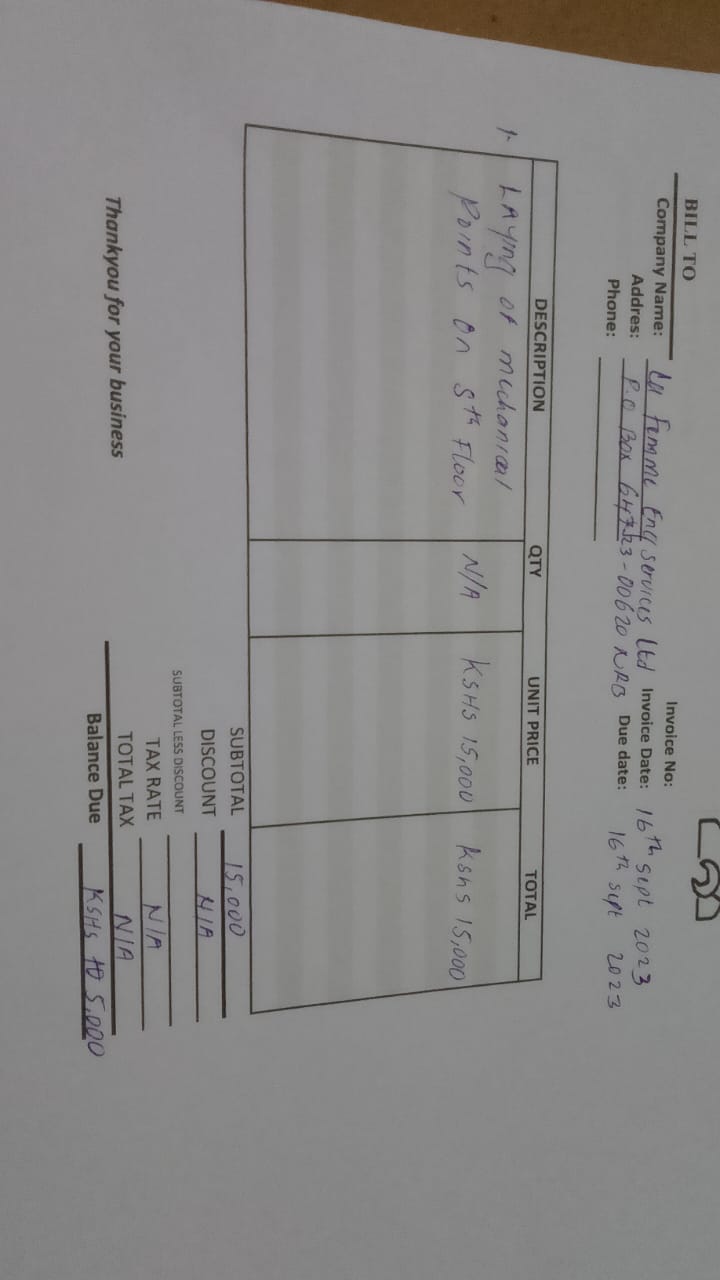 BILL TO
Company Name: La Femme Eng Services Ltd
Addres: P.O Box 64723-00620 NRB
Phone:
Invoice No:
Invoice Date: 16th Sept 2023
Due date: 16th Sept 2023
DESCRIPTION QTY UNIT PRICE TOTAL
Laying of mechanical
Points on 5th Floor N/A KSHS 15,000 Kshs 15,000
SUBTOTAL 15,000
DISCOUNT N/A
SUBTOTAL LESS DISCOUNT
TAX RATE N/A
TOTAL TAX N/A
Balance Due KSHS 5,000
Thankyou for your business